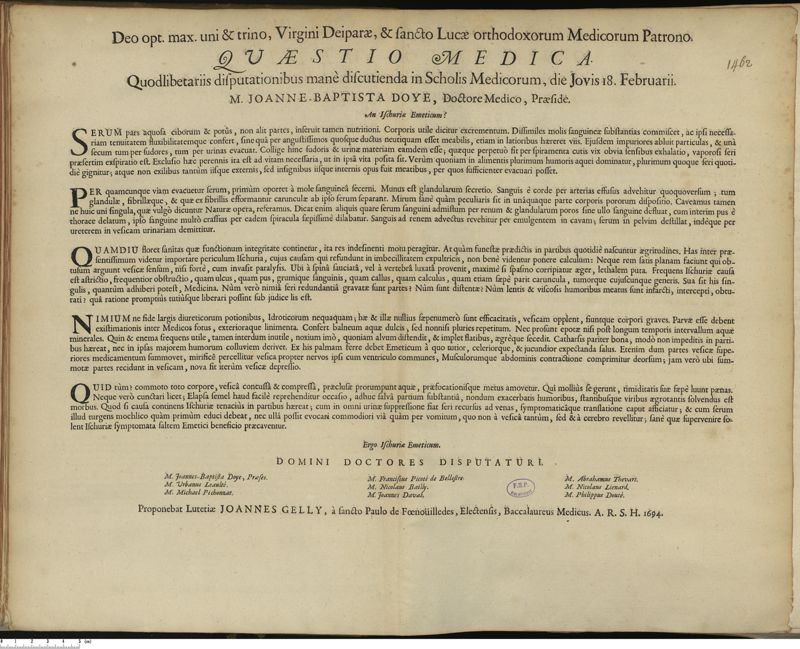 Deo opt. max. uni & trino, Virgini Deiparæ, & sancto Lucæ orthodoxorum Medicorum Patrono.
QUÆSTIO MEDICA.
Quodlibetariis disputationibus manè discutienda in Scholis Medicorum, die Jovis 18. Februarii.
1462
M. JOANNE-BAPTISTA DOYE, Doctore Medico, Præside.
An Ischuriæ Emeticum?
SERUM pars aquosa ciborum & potûs, non alit partes, inserit tamen nutritioni. Corporis utile dicitur excrementum. Dissimiles molis sanguineæ substantias commiscet, ac ipsi necessa-
riam tenuitatem fluxibilitatemque confert, sine quâ per angustissimos quosque ductus neutiquam esset meabilis, etiam in latioribus hæreret viis. Ejusdem impuriores abluit particulas, & unà
secum tum per sudores, tum per urinas evacuat. Collige hinc sudoris & urinæ materiam eamdem esse; quæque perpetuò fit per spiramenta cutis vix obvia sensibus exhalatio, vaporosi seri
præsertim exspiratio est. Exclusio hæc perennis ita est ad vitam necessaria, ut in ipsâ vita posita sit. Verùm quoniam in alimentis plurimum humoris aquei dominatur, plurimum quoque seri quoti-
diè gignitur; atque non exilibus tantùm iisque externis, sed insignibus iisque internis opus fuit meatibus, per quos sufficienter evacuari posset.
PER quamcunque viam evacuetur serum, primùm oportet à mole sanguineâ secerni. Munus est glandularum secretio. Sanguis è corde per arterias effusus advehitur quoquoversum; tum
glandulæ, fibrillæque, & quæ ex fibrillis efformantur carunculæ ab ipso serum separant. Mirum sanè quàm peculiaris sit in unâquaque parte corporis pororum dispositio. Caveamus tamen
ne huic uni singula, quæ vulgò dicuntur Naturæ opera, referamus. Dicat enim aliquis quare serum sanguini admistum per renum & glandularum poros sine ullo sanguine defluat, cum interim pus è
thorace delatum, ipso sanguine multò crassius per eadem spiracula sæpissimè dilabatur. Sanguis ad renem advectus revehitur per emulgentem in cavam; serum in pelvim destillat, indéque per
ureterem in vesicam urinariam demittitur.
QUAMDIU floret sanitas quæ functionum integritate continetur, ita res indesinenti motu peragitur. At quàm funestæ prædictis in partibus quotidiè nascuntur ægritudines. Has inter præ-
sentissimum videtur importare periculum Ischuria, cujus causam qui refundunt in imbecillitatem expultricis, non benè videntur ponere calculum: Neque rem satis planam faciunt qui ob-
tusum arguunt vesicæ sensum, nisi fortè, cum invasit paralysis. Ubi à spinâ sauciatâ, vel à vertebrâ luxatâ provenit, maximè si spasmo corripiatur æger, lethalem puta. Frequens Ischuriæ causa
est astrictio, frequentior obstructio, quam ulcus, quam pus, grumique sanguinis, quam callus, quam calculus, quam etiam sæpè parit caruncula, tumorque cujuscunque generis. Sua sit his sin-
gulis, quantùm adhiberi potest, Medicina. Nùm verò nimiâ seri redundantiâ gravatæ sunt partes? Nùm sunt distentæ? Nùm lentis & viscosis humoribus meatus sunt infarcti, intercepti, obtu-
rati? quâ ratione promptiùs tutiùsque liberari possint sub judice lis est.
NIMIUM ne fide largis diureticorum potionibus, Idroticorum nequaquam; hæ & illæ nullius sæpenumerò sunt efficacitatis, vesicam opplent, fiuntque corpori graves. Parvæ esse debent
existimationis inter Medicos fotus, exterioraque linimenta. Confert balneum aquæ dulcis, sed nonnisi pluries repetitum. Nec prosunt epotæ nisi post longum temporis intervallum aquæ
minerales. Quin & enema frequens utile, tamen interdum inutile, noxium imò, quoniam alvum distendit, & implet flatibus, ægrèque secedit. Catharsis pariter bona, modò non impeditis in parti-
bus hæreat, nec in ipsas majorem humorum colluviem derivet. Ex his palmam ferre debet Emeticum à quo tutior, celeriorque, & jucundior expectanda salus. Etenim dum partes vesicæ supe-
riores medicamentum summovet, mirificè percellitur vesica propter nervos ipsi cum ventriculo communes, Musculorumque abdominis contractione comprimitur deorsum; jam verò ubi sum-
motæ partes recidunt in vesicam, nova fit iterùm vesicæ depressio.
QUID tùm? commoto toto corpore, vesicâ concussâ & compressâ, præclusæ prorumpunt aquæ, præfocationisque metus amovetur. Qui molliùs se gerunt, timiditatis suæ sæpè luunt pœnas.
Neque verò cunctari licet; Elapsa semel haud facilè reprehenditur occasio, adhuc salvâ partium substantiâ, nondum exacerbatis humoribus, stantibusque viribus ægrotantis solvendus est
morbus. Quod si causa continens Ischuriæ tenaciùs in partibus hæreat; cum in omni urinæ suppressione fiat seri recursus ad venas, symptomaticâque translatione caput afficiatur; & cum serum
illud turgens mochlico quàm primùm educi debeat, nec ullâ possit evocari commodiori viâ quàm per vomitum, quo non à vesicâ tantùm, sed & à cerebro revellitur; sanè quæ supervenire so-
lent Ischuriæ symptomata saltem Emetici beneficio præcaventur.
Ergo Ischuriæ Emeticum.
DOMINI DOCTORES DISPUTATURI.
M. Joannes-Baptista Doye, Præses.
M. Urbanus Leaulté.
M. Michael Pichonnat.
M. Franciscus Picoté de Bellestre.
M. Nicolaus Bailly.
M. Joannes Daval.
M. Abrahamus Thevart.
M. Nicolaus Lienard.
M. Philippus Doucé.
Proponebat Lutetiæ JOANNES GELLY, à sancto Paulo de Fœnoüilledes, Electensis, Baccalaureus Medicus. A. R. S. H. 1694.